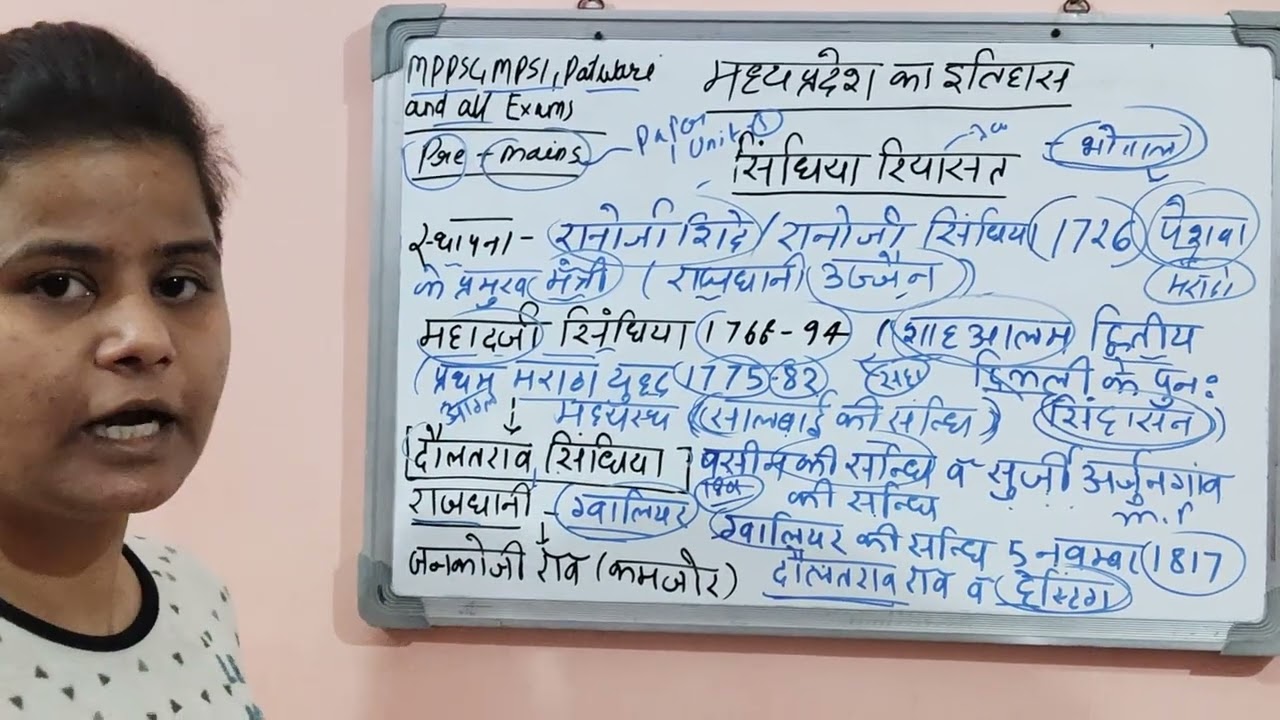 MPPSC, MPSI, Patwari
and all Exams
Pre - mains
Paper
1 Unit-
मध्यप्रदेश का इतिहास
सिंधिया रियासत - भोपाल
स्थापना - रानोजी शिंदे / रानोजी सिंधिया 1726 पेशवा
के प्रमुख मंत्री ( राजधानी उज्जैन ) मराठा
महादजी सिंधिया 1766-94 ( शाह आलम द्वितीय
( प्रथम मराठा युद्ध 1775-82 दिल्ली के पुनः
आंग्ल मध्यस्थ (सालबाई की सन्धि) सिंहासन )
दौलतराव सिंधिया बसीन की सन्धि व सुर्जी अर्जुनगांव
राजधानी - ग्वालियर की सन्धि m.p
ग्वालियर की सन्धि 5 नवम्बर 1817
जनकोजी राव (कमजोर) दौलतराव राव व हेस्टिंग